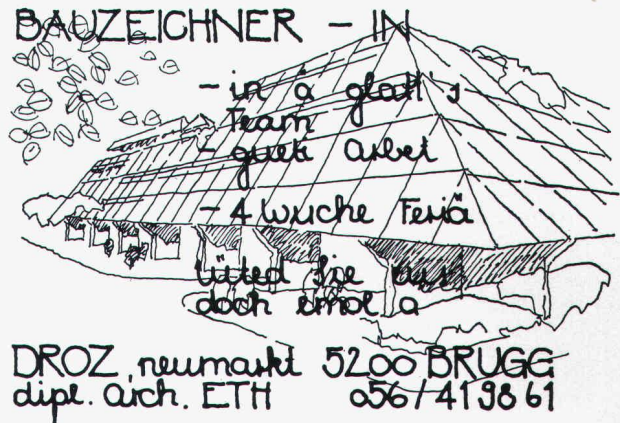 BAUZEICHNER - IN
- in ä glatt's
Team
- gueti Arbet
- 4 Wuche Feriä
lüted Sie eus
doch emol a
DROZ, neumarkt 5200 BRUGG
dipl. Arch. ETH 056/41 98 61